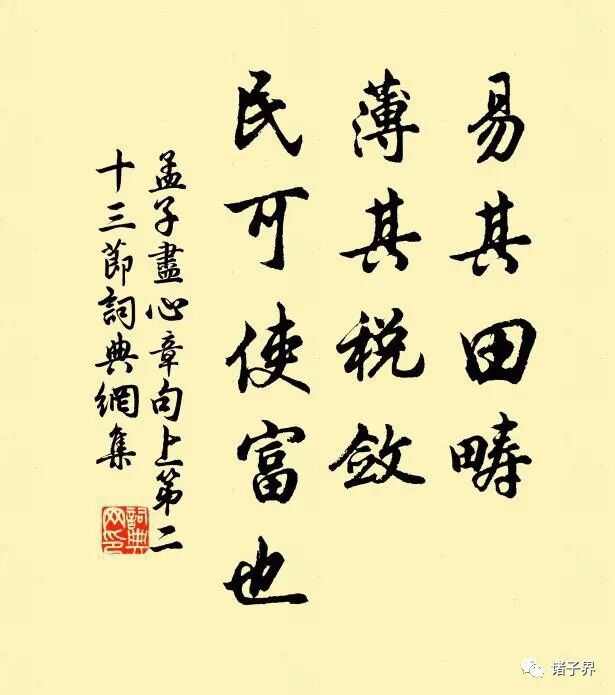 易其田畴
薄其税敛
民可使富也
孟子盡心章句上第二
十三節詞典網集
詞典
网印
诸子界